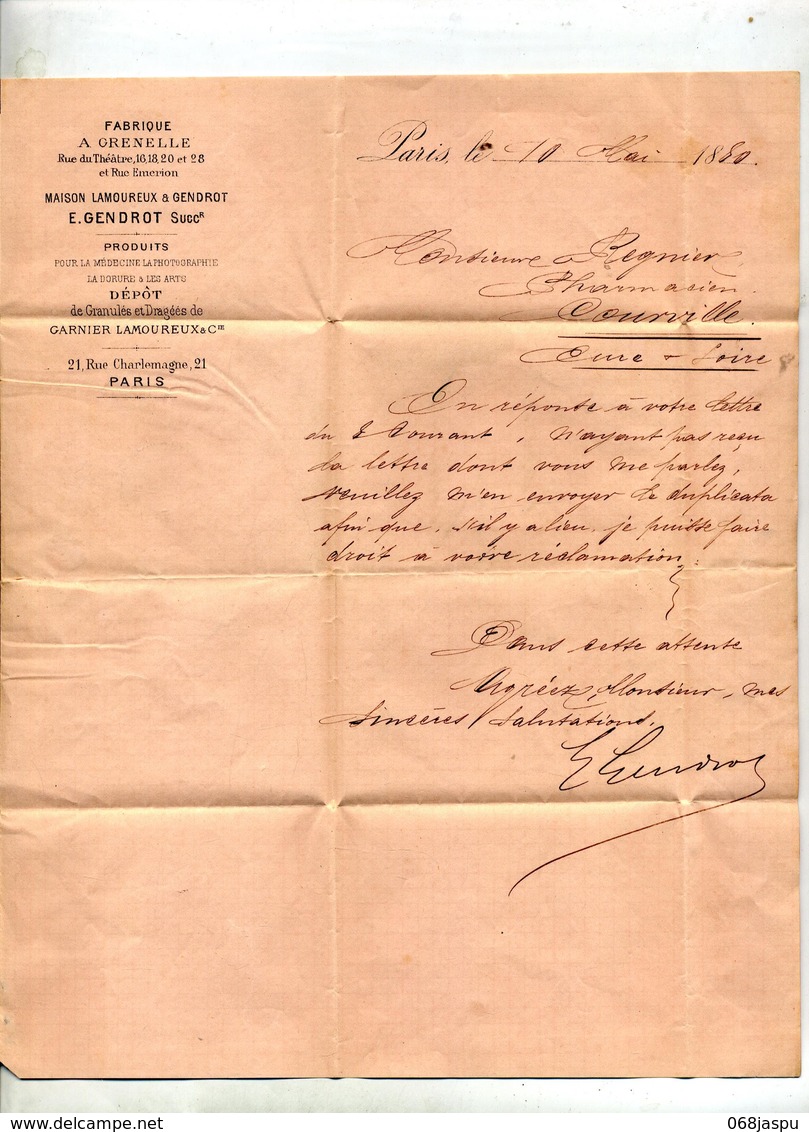 FABRIQUE
A GRENELLE
Rue du Théâtre, 16, 18, 20 et 28
et Rue Emerion
MAISON LAMOUREUX & GENDROT
E. GENDROT SUCCR
PRODUITS
POUR LA MÉDECINE LA PHOTOGRAPHIE
LA DORURE & LES ARTS
DÉPÔT
de Granules et Dragées de
GARNIER LAMOUREUX & Cie
21, Rue Charlemagne, 21
PARIS
Paris, le 10 Mai 1880.
Monsieur Regnier
Pharmacien
Courville.
Eure & Loire
En réponse à votre lettre
du courant, n'ayant pas reçu
la lettre dont vous me parlez,
veuillez m'en envoyer le duplicata
afin que, s'il y a lieu, je puisse faire
droit à votre réclamation.
Dans cette attente
Agréez, Monsieur, mes
sincères salutations.
E Gendrot
068jaspu